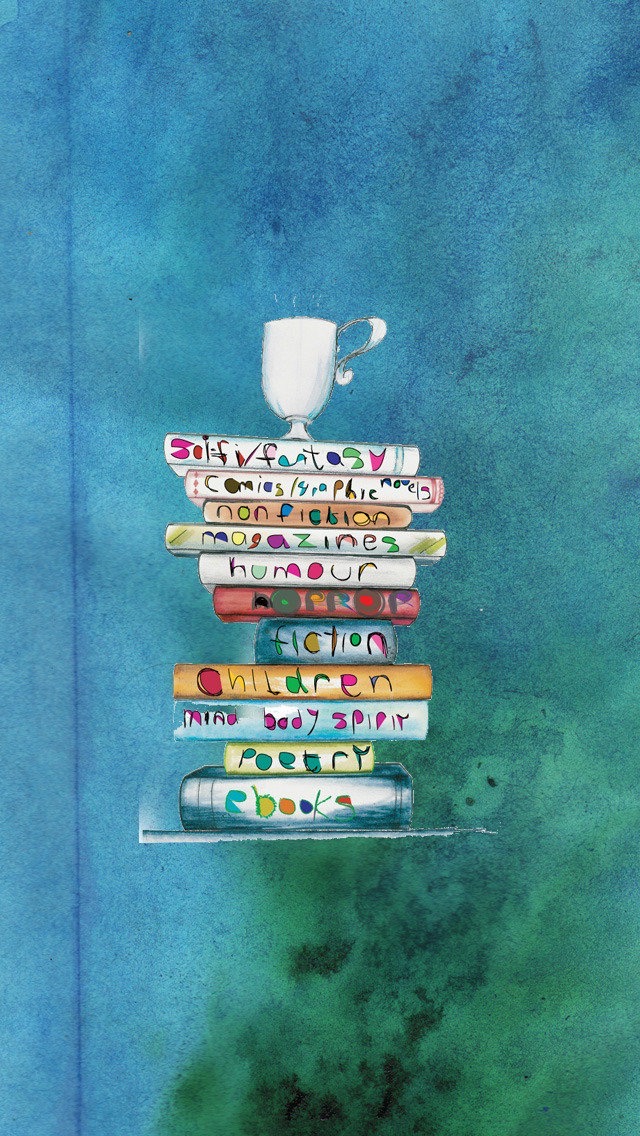 sci-fi/fantasy
comics/graphic novels
nonfiction
magazines
humour
HORROR
fiction
children
mind body spirit
poetry
ebooks